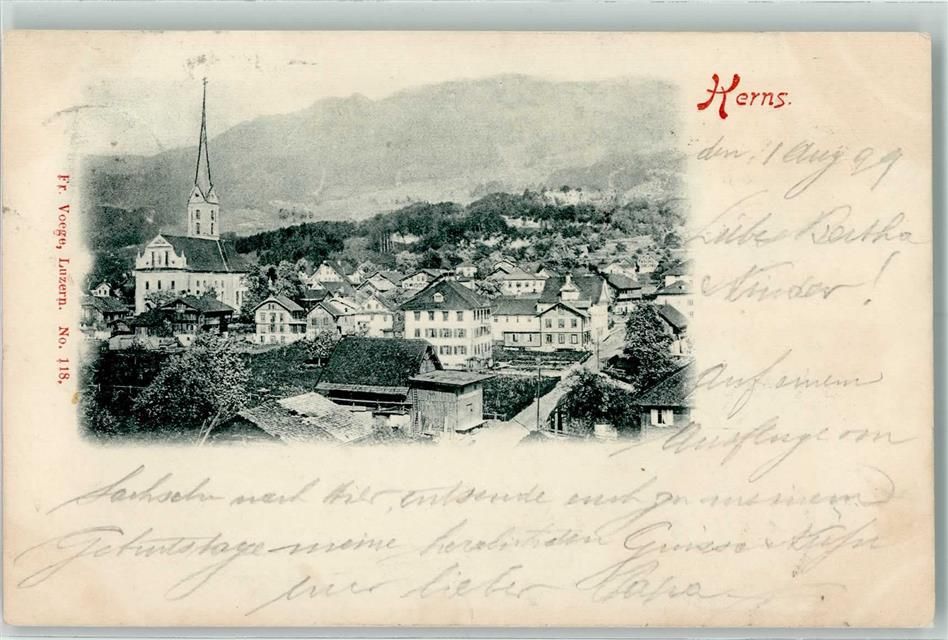 Kerns.
Fr. Voege, Luzern. No. 118.
den 1 Aug 99
Liebe Bertha
Kinder!
Auf einem
Ausfluge von
Sachseln nach hier, entsende euch zu meinem
Geburtstage meine herzlichsten Grüsse
euer lieber Papa